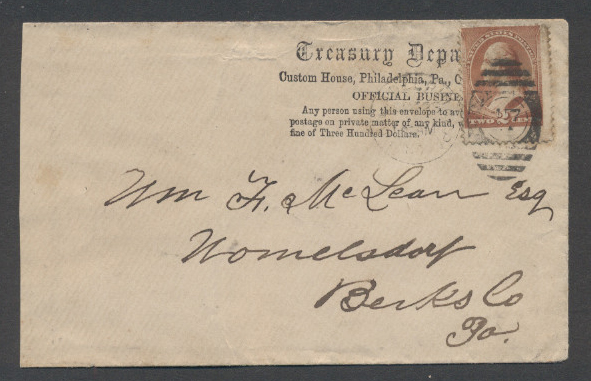 Treasury Depa
Custom House, Philadelphia, Pa.,
OFFICIAL BUSINE
Any person using this envelope to av
postage on private matter of any kind,
fine of Three Hundred Dollars.
TWO CEN
Wm F. McLean Esq
Womelsdorf
Berks Co
Pa.